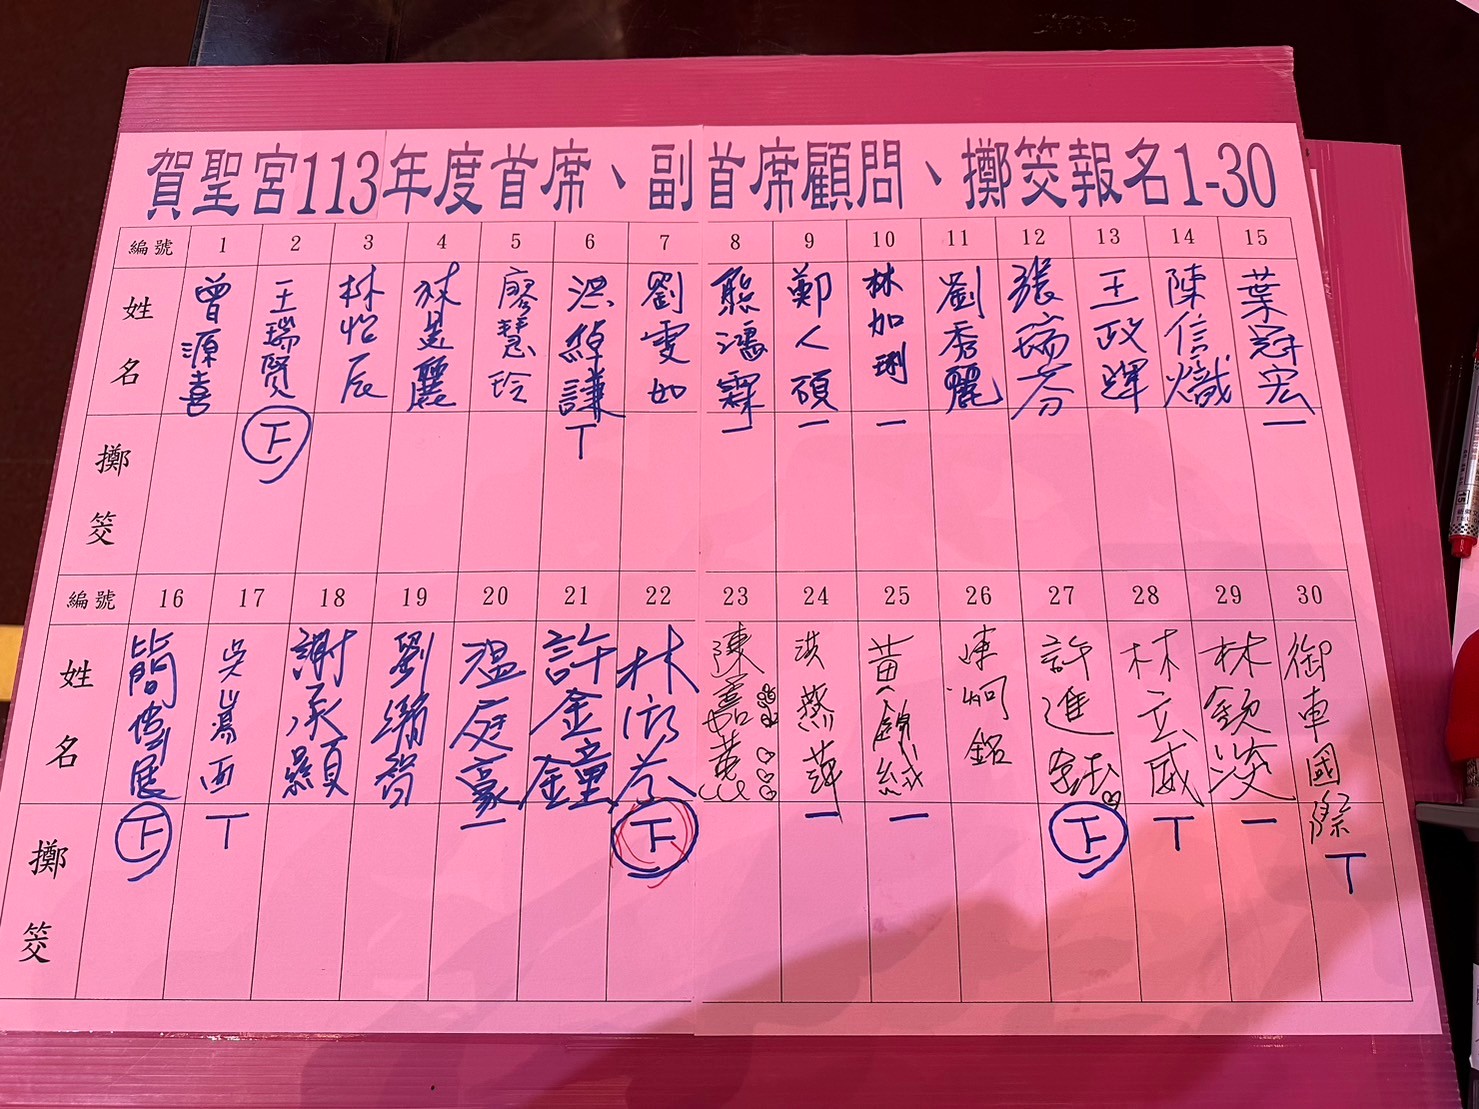 賀聖宮113年度首席、副首席顧問、擲筊報名1-30
編號 1 2 3 4 5 6 7 8 9 10 11 12 13 14 15
姓名 曾源喜 王瑞賢 林怡辰 林昱麗 廖慧玲 洪綽謙 劉雯如 熊濡霖 鄭人碩 林加琍 劉秀麗 張瑞芬 王政暉 陳信熾 葉冠宏
擲筊 下 丅 一 一 一 一
編號 16 17 18 19 20 21 22 23 24 25 26 27 28 29 30
姓名 吳 謝承顯 劉瀚智 溫庭豪 許金鐘 林 陳 洪燕萍 黃 銘 許進 林立威 林欽浚 御車國際
擲筊 下 丅 一 下 一 一 下 丅 一 丅